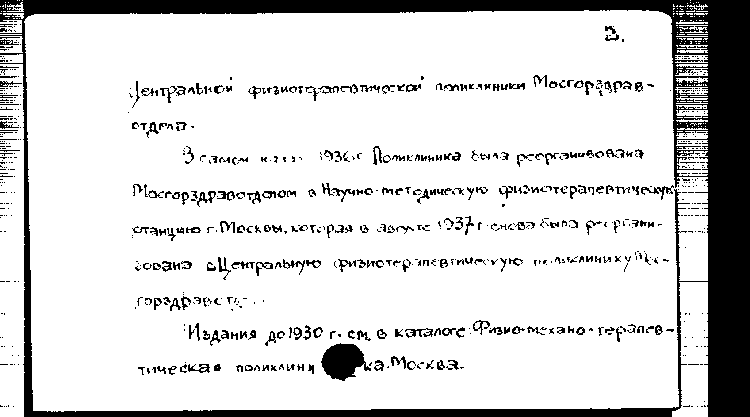 3.
Центральной физиотерапевтической поликлиники Мосгорздрав-
отдела.
В самом 1936 г Поликлиника была реорганизована
Мосгорздравотделом в Научно-методическую физиотерапевтическую
станцию г. Москвы, которая в августе 1937 г. снова была реоргани-
зована в Центральную физиотерапевтическую поликлинику Мос-
горздравот
Издания до 1930 г. см. в каталоге: Физио-механо-терапев-
тическая поликлини ка. Москва.